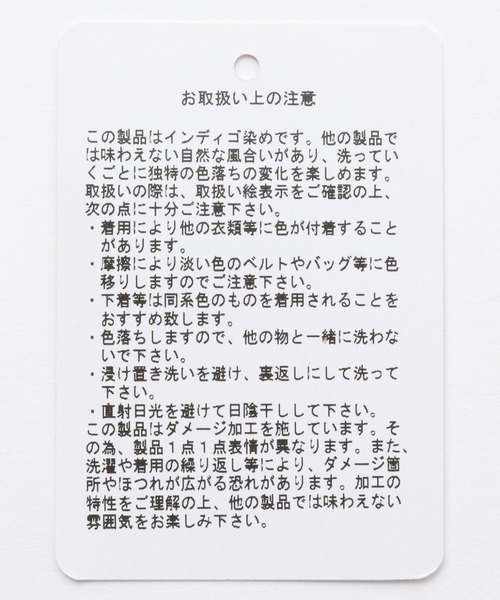 お取扱い上の注意
この製品はインディゴ染めです。他の製品で
は味わえない自然な風合いがあり、洗ってい
くごとに独特の色落ちの変化を楽しめます。
取扱いの際は、取扱い絵表示をご確認の上、
次の点に十分ご注意下さい。
・着用により他の衣類等に色が付着すること
があります。
・摩擦により淡い色のベルトやバッグ等に色
移りしますのでご注意下さい。
・下着等は同系色のものを着用されることを
おすすめ致します。
・色落ちしますので、他の物と一緒に洗わな
いで下さい。
・浸け置き洗いを避け、裏返しにして洗って
下さい。
・直射日光を避けて日陰干しして下さい。
この製品はダメージ加工を施しています。そ
の為、製品１点１点表情が異なります。また、
洗濯や着用の繰り返し等により、ダメージ箇
所やほつれが広がる恐れがあります。加工の
特性をご理解の上、他の製品では味わえない
雰囲気をお楽しみ下さい。